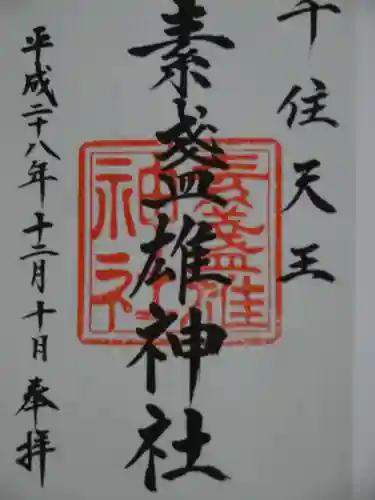 千住天王
素盞雄神社
平成二十八年十二月十日奉拝
素盞雄
神社